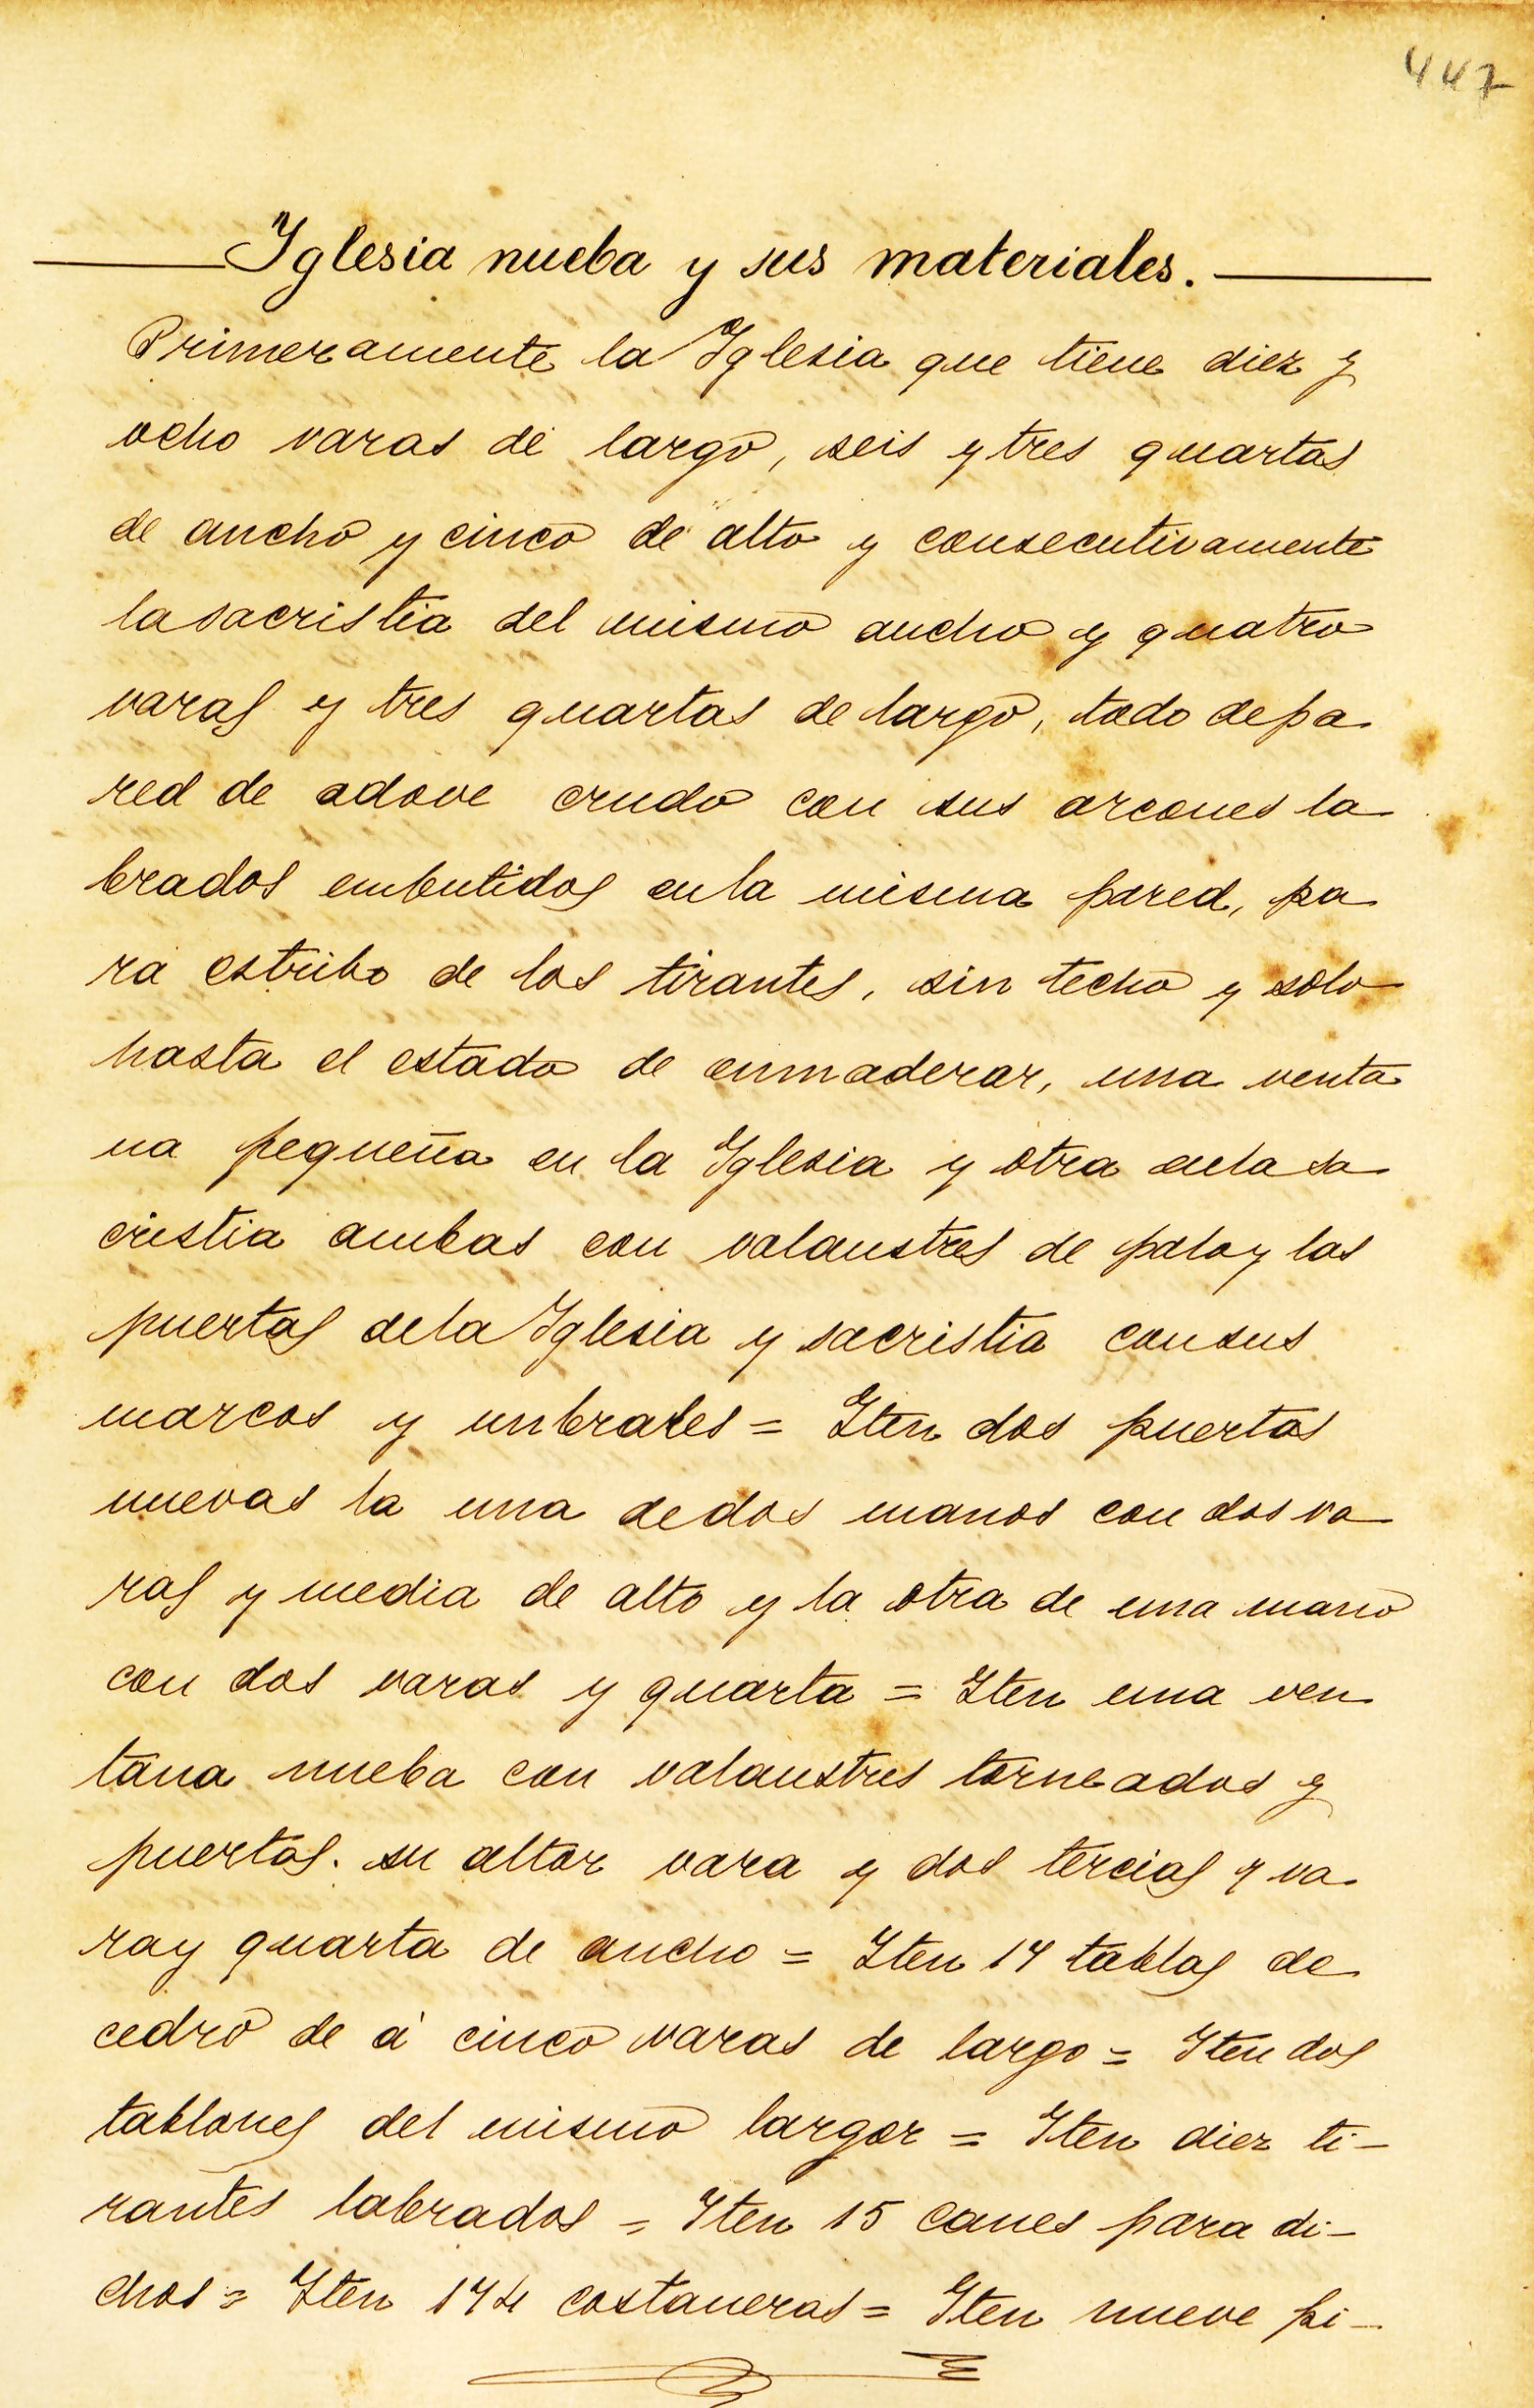 447
Iglesia nueba y sus materiales.
Primeramente la Iglesia que tiene diez y
ocho varas de largo, seis y tres quartas
de ancho y cinco de alto y consecutivamente
la sacristia del mismo ancho y quatro
varas y tres quartas de largo, todo de pa
red de adove crudo con sus arcones la
brados embutidos en la misma pared, pa
ra estribo de los tirantes, sin techo y solo
hasta el estado de enmaderar, una venta
na pequeña en la Iglesia y otra en la sa
cristia ambas con valaustres de palo y las
puertas de la Iglesia y sacristia con sus
marcos y unbrales = Iten dos puertas
nuevas la una de dos manos con dos va
ras y media de alto y la otra de una mano
con dos varas y quarta = Iten una ven
tana nueba con valaustres torneados y
puertas. su altor vara y dos tercias y va
ra y quarta de ancho = Iten 14 tablas de
cedro de á cinco varas de largo = Iten dos
tablones del mismo largor = Iten diez ti-
rantes labrados = Iten 15 canes para di-
chos = Iten 174 costaneras = Iten nueve pi-